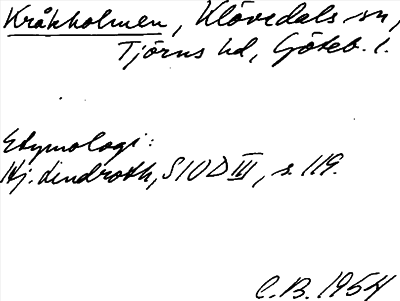 Kråkholmen, Klövedals sn,
Tjörns hd, Göteb. l.
Etymologi:
Hj. Lindroth, SIOD III, s. 119.
C.B. 1954